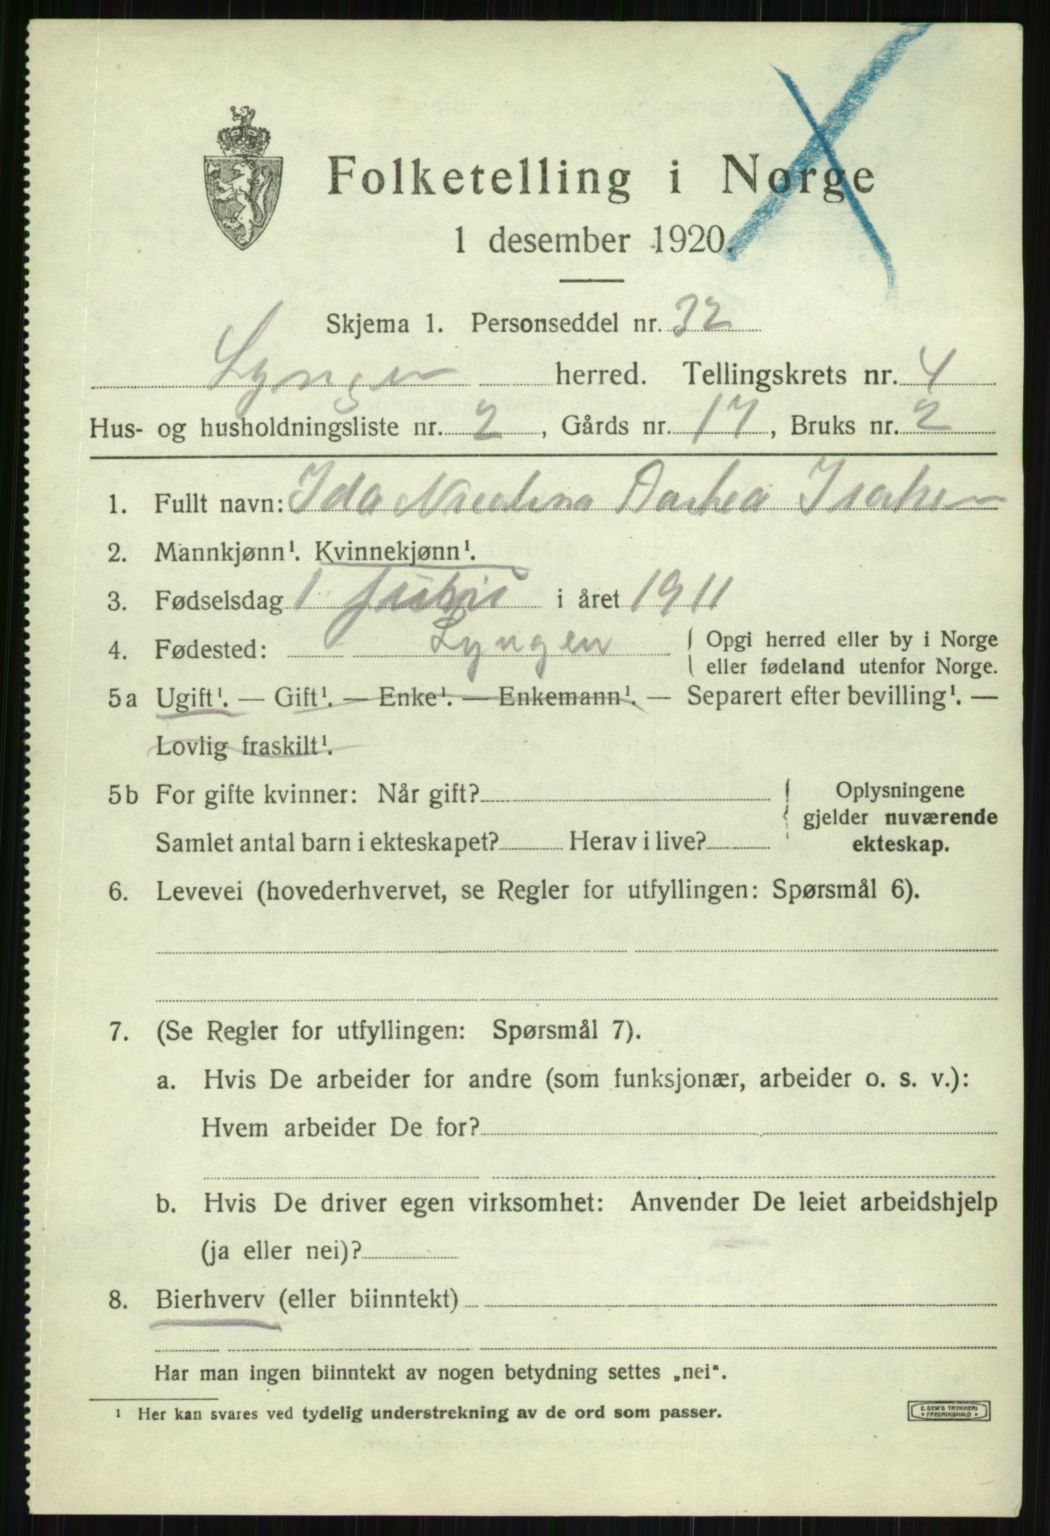 Folketelling i Norge
1 desember 1920.
Skjema 1. Personseddel nr. 32
Lyngen herred. Tellingskrets nr. 4
Hus- og husholdningsliste nr. 2, Gårds nr. 17, Bruks nr. 2
1. Fullt navn: Ida Isaksen
2. Mannkjønn¹. Kvinnekjønn¹.
3. Fødselsdag 1 i året 1911
4. Fødested: Lyngen { Opgi herred eller by i Norge
eller fødeland utenfor Norge.
5a Ugift¹. — Gift¹. — Enke¹. — Enkemann¹. — Separert efter bevilling¹. —
Lovlig fraskilt¹.
5b For gifte kvinner: Når gift? { Oplysningene
gjelder nuværende
Samlet antal barn i ekteskapet? Herav i live? ekteskap.
6. Levevei (hovederhvervet, se Regler for utfyllingen: Spørsmål 6).
7. (Se Regler for utfyllingen: Spørsmål 7).
a. Hvis De arbeider for andre (som funksjonær, arbeider o. s. v.):
Hvem arbeider De for?
b. Hvis De driver egen virksomhet: Anvender De leiet arbeidshjelp
(ja eller nei)?
8. Bierhverv (eller biinntekt)
Har man ingen biinntekt av nogen betydning settes „nei“.
¹ Her kan svares ved tydelig understrekning av de ord som passer.
E. SEM'S TRYKKERI
FREDRIKSHALD